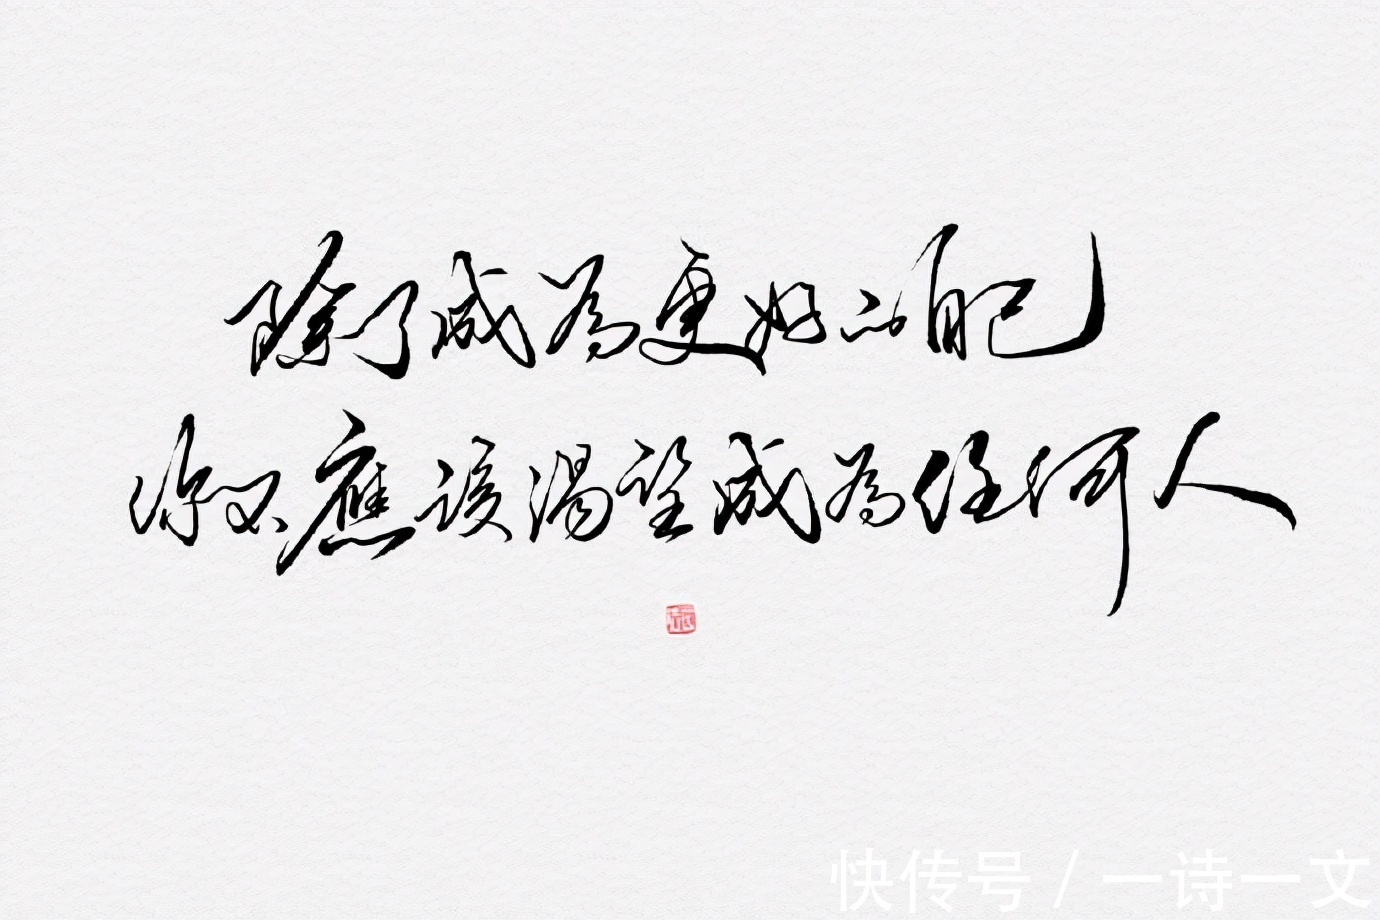 除了成為更好的自己
你不應該渴望成為任何人
快传号 / 一诗一文